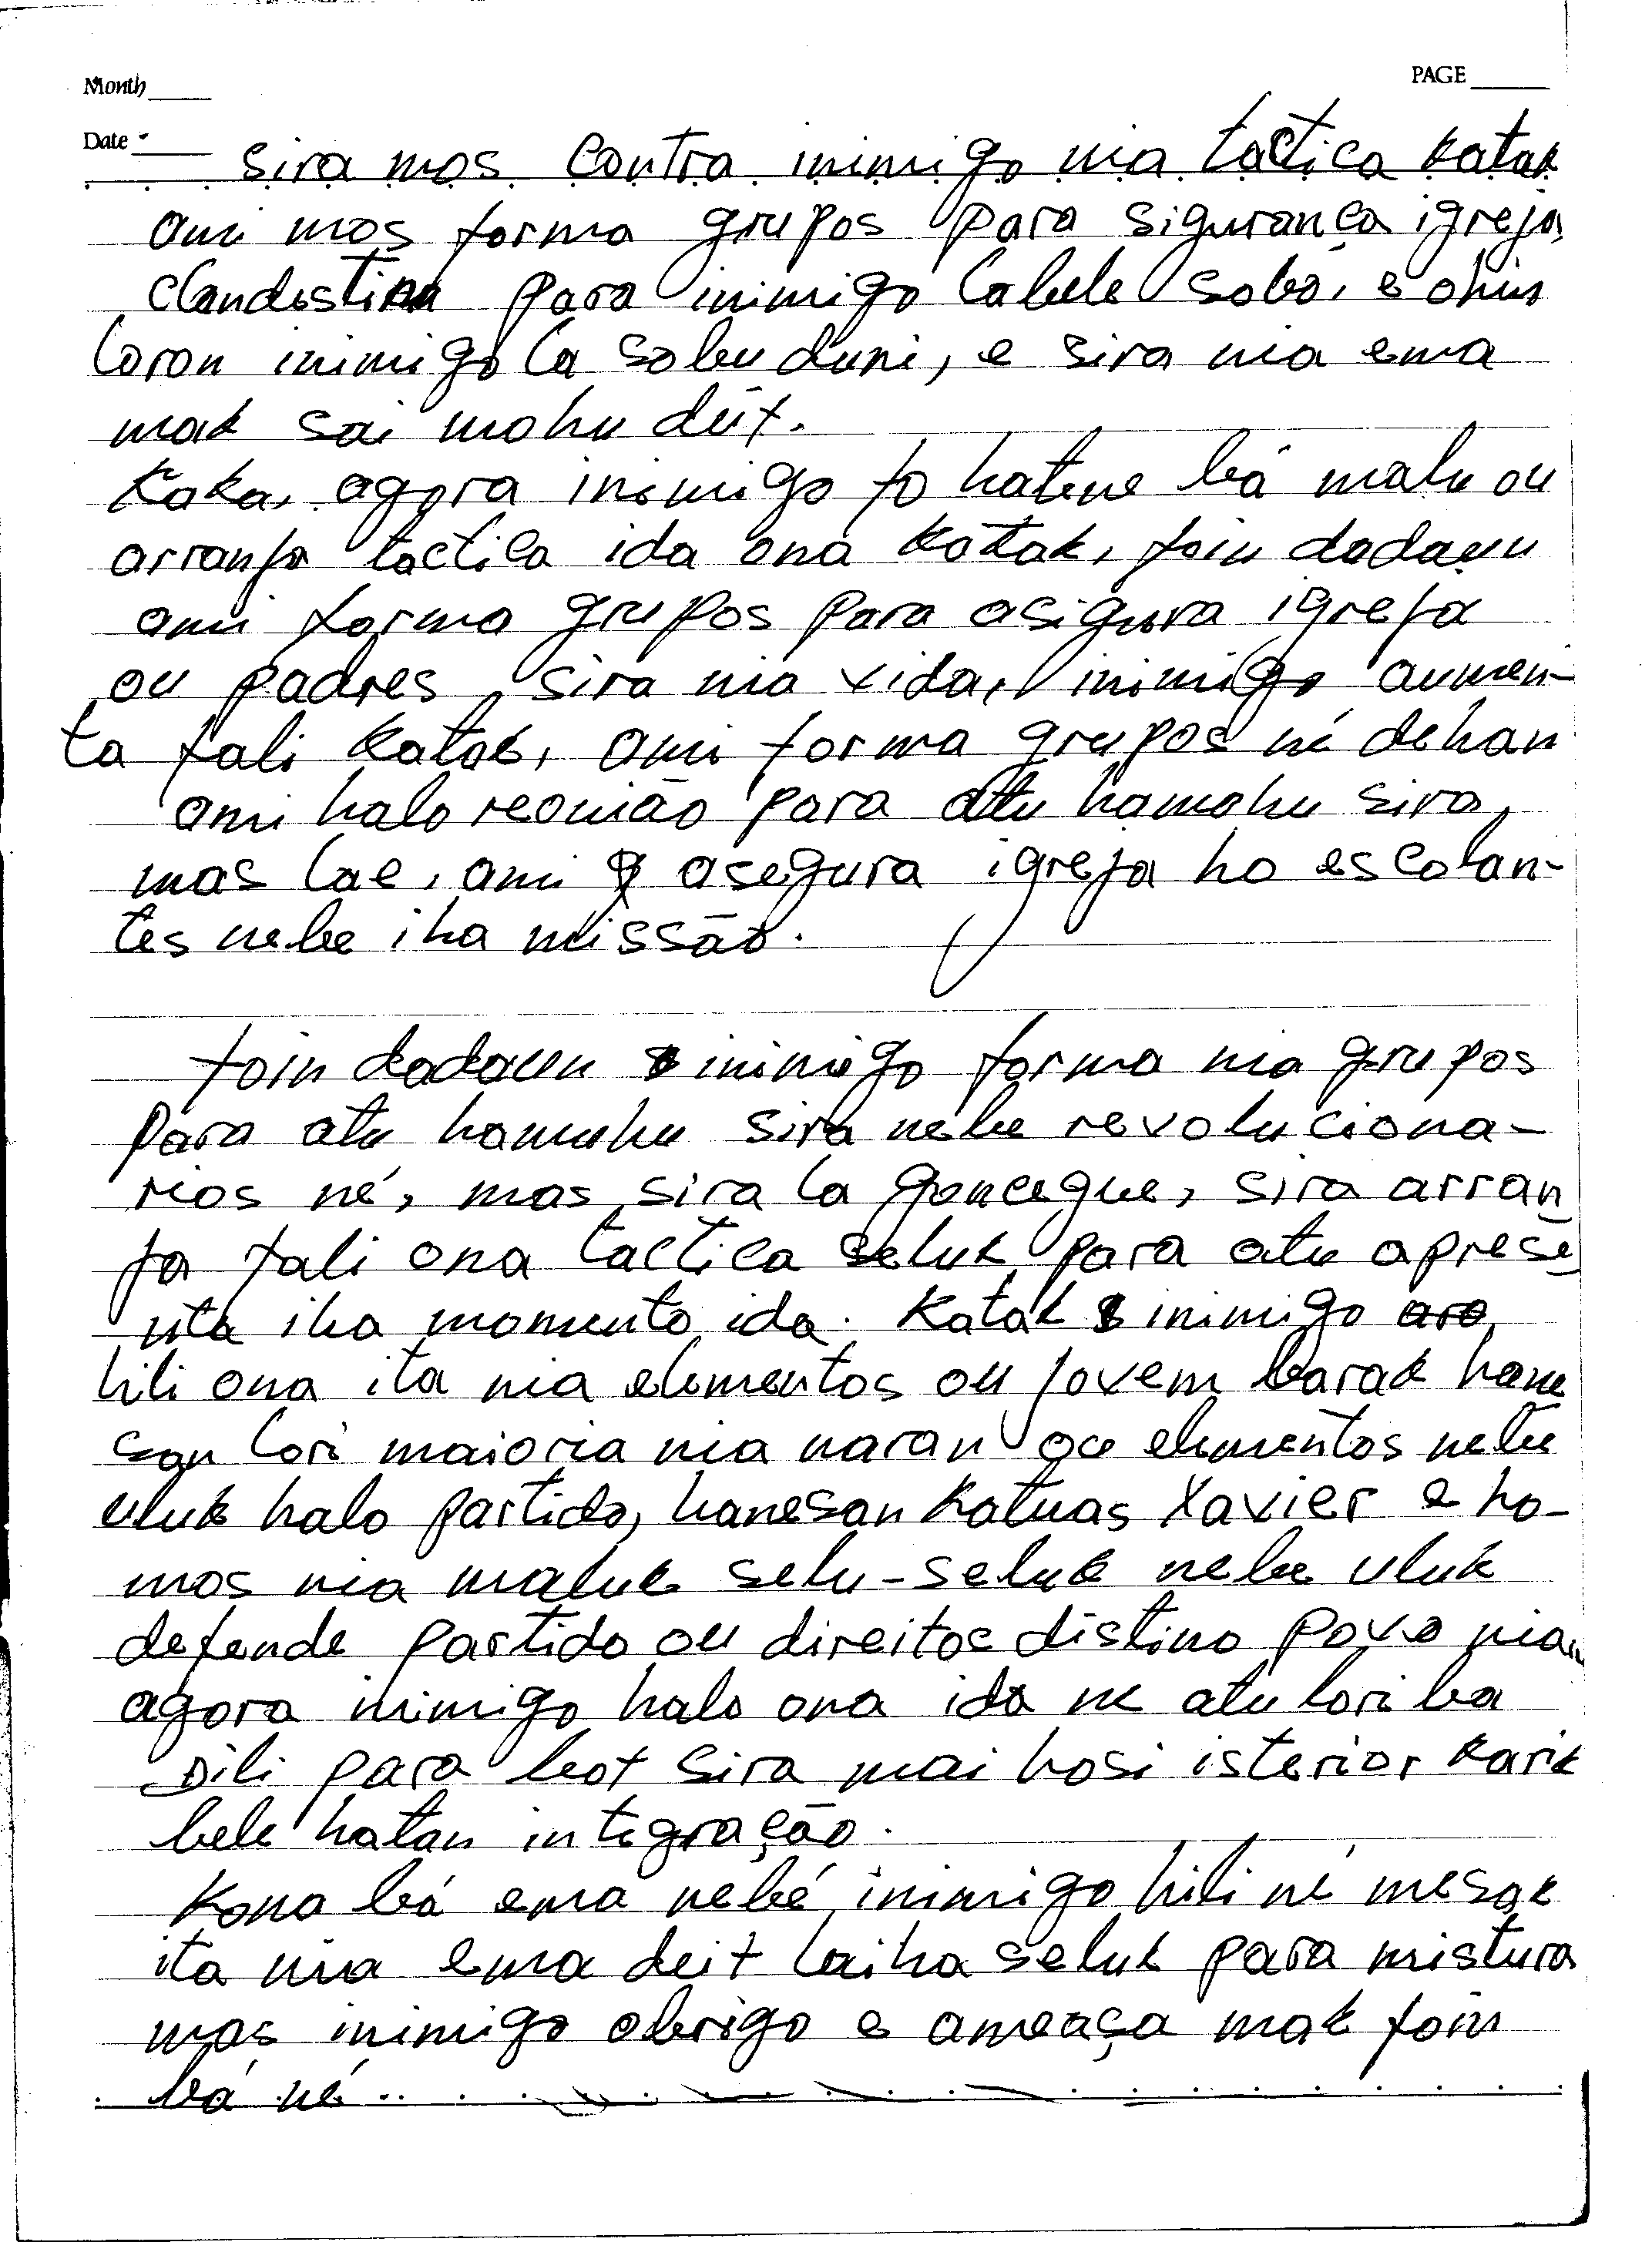 Month
PAGE
Date
sira mos contra inimigo nia tactica katak
ami mos forma grupos para sigurança igreja
clandestina para inimigo labele sobo, e ohin
loron inimigo la sobu duni, e sira nia ema
mak sai mohu deit.
Kaka, agora inimigo fo hatene bá malu ou
arranja tactica ida ona katak, foin dadaun
ami forma grupos para asigura igreja
ou padres sira nia vida, inimigo aumen-
ta fali katak, ami forma grupos né dehan
ami halo reonião para atu hamohu sira,
mas lae, ami asegura igreja ho escolan-
tes nebe iha missão.
foin dadauu inimigo forma nia grupos
para atu hamuhu sira nebe revoluciona-
rios né, mas sira la gonsegue, sira arran
ja fali ona tactica seluk para atu aprese
nta iha momento ida. Katak inimigo
hili ona ita nia elementos ou jovem barak hane
san lori maioria nia naran ou elementos nebe
uluk halo partido, hanesan Katuas Xavier e ho-
mos nia maluk selu-seluk nebe uluk
defende partido ou direitos distino povo nian
agora inimigo halo ona ida ne atu lori ba
Dili para bot sira mai hosi isterior karik
bele hatan integração.
Kona bá ema nebé inimigo hili né mesak
ita nia ema deit laiha seluk para mistura
mas inimigo obrigo e ameaça mak foin
bá né..